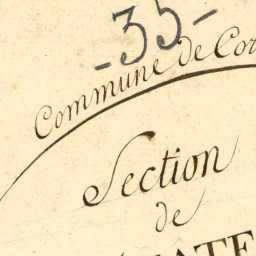 -35-
Commune de Cor
Section
de